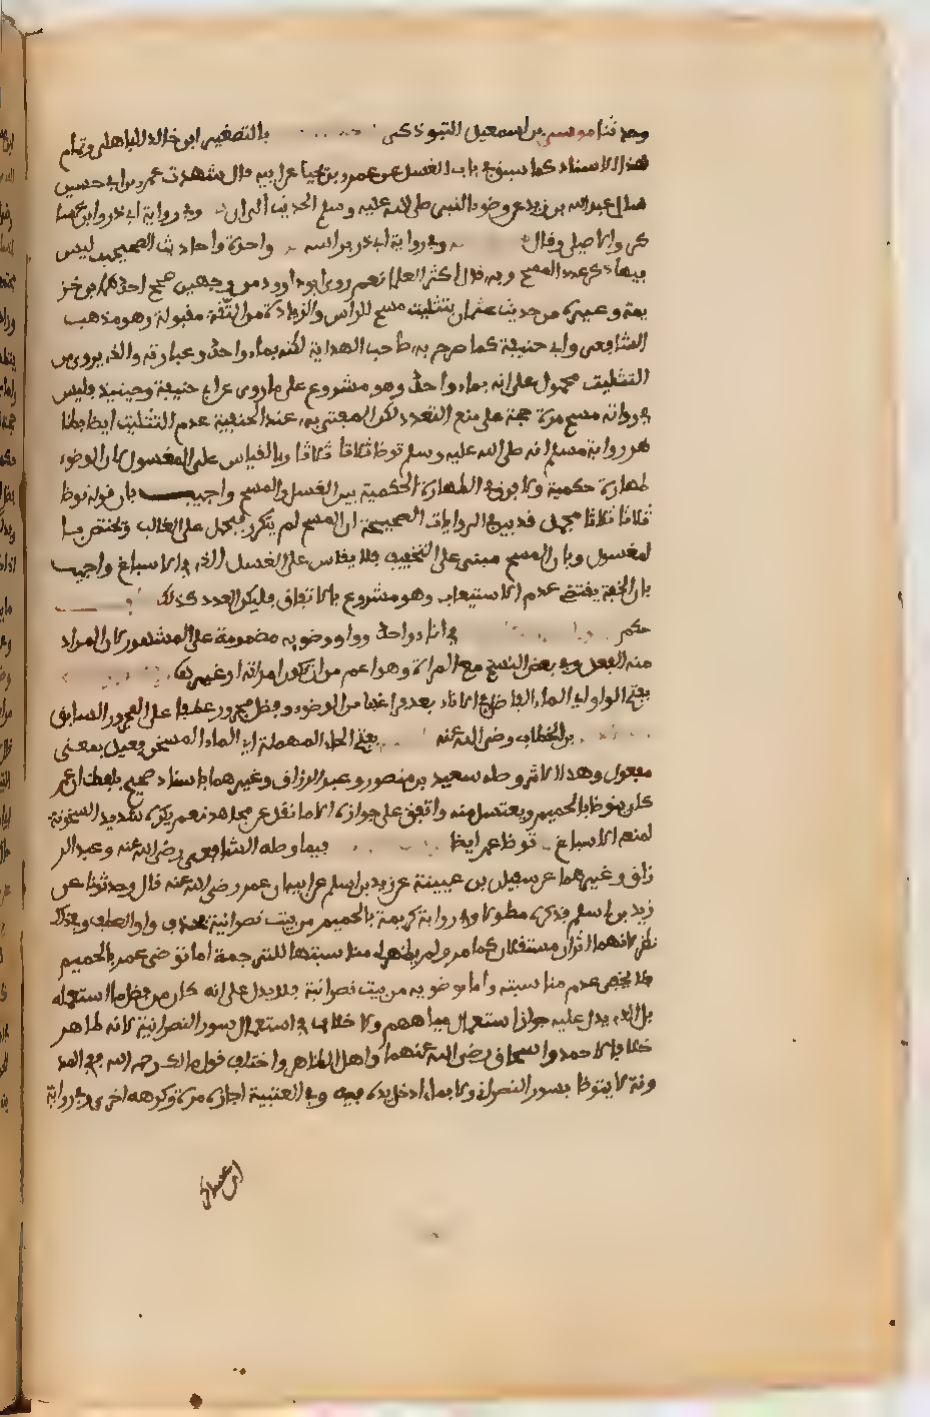 وحدثنا موسى بن اسمعيل التبوذكي بالتصغير ابن خالد الباهلي وتمام
هذا الاسناد كما سبق في باب الغسل عن عمرو بن يحيا عن ابيه قال شهدت عمرو بن ابي حسين
سال عبد الله بن زيد عن وضوء النبي صلى الله عليه وسلم الحديث الى ان وفي رواية ابي ذر وابن عسا
كر والاصيلي وقال وفي رواية ابي ذر براسه واحدة واحاديث الصحيحين ليس
فيها ذكر عدد المسح وبه قال اكثر العلما نعم روى ابو داوود من وجهين صحح احدهما ابن خز
يمة وغيره من حديث عثمان بتثليث مسح الراس والزيادة من الثقة مقبولة وهو مذهب
الشافعي وابي حنيفة كما صرح به صاحب الهداية لكنه بماء واحد وعبارته والذي يروى من
التثليث محمول على انه بماء واحد وهو مشروع على ما روى عن ابي حنيفة وحينيذ فليس
في رواية مسح مرة حجة على منع التعدد لكن المفتى به عند الحنفية عدم التثليث ايضا
رواية مسلم انه صلى الله عليه وسلم توضا ثلاثا ثلاثا وبالقياس على المغسول لان الوضوء
طهارة حكمية ولا فرق في الطهارة الحكمية بين الغسل والمسح واجيب بان قوله توضا
ثلاثا ثلاثا مجمل قد بين في الروايات الصحيحة ان المسح لم يتكرر فيحمل على الغالب وتختص با
لمغسول وبان المسح مبنى على التخفيف فلا يقاس على الغسل الذي فيه الاسباغ واجيب
بان الخفة تقتضي عدم الاستيعاب وهو مشروع بالاتفاق فليكن العدد كذلك
حكم في اناء واحد وواو وضوءه مضمومة على المشهور لان المراد
منه الفعل وفي بعض النسخ مع المراة وهو اعم من ان تكون امراته او غيرها
بفتح الواو اي الماء الفاضل في الاناء بعد فراغها من الوضوء وفضل مجرور عطفا على المجرور السابق
بن الخطاب رضي الله عنه بفتح الحاء المهملة اي الماء المسخن فعيل بمعنى
مفعول وهذا الاثر وصله سعيد بن منصور وعبد الرزاق وغيرهما باسناد صحيح بلفظ ان عمر
كان يتوضا بالحميم ويغتسل منه واتفق على جوازه الا ما نقل عن مجاهد نعم يكره شديد السخونة
لمنعه الاسباغ توضا عمر ايضا فيما وصله الشافعي رضي الله عنه وعبد الر
زاق وغيرهما عن سفيان بن عيينة عن زيد بن اسلم عن ابيه ان عمر رضي الله عنه قال وحدثونا عن
زيد بن اسلم فذكره مطولا وفي رواية كريمة بالحميم من بيت نصرانية بحذف واو العطف وفي ذلك
نظر لانهما اثران مستقلان كما مر ولم يظهر لي مناسبتها للترجمة اما توضي عمر بالحميم
فلا يخفى عدم مناسبته واما توضوه من بيت نصرانية فلا يدل على انه كان من فضل ما استعملته
بل الذي يدل عليه جواز استعمال مياههم ولا خلاف في استعمال سور النصرانية لانه طاهر
خلافا لاحمد واسحاق رضي الله عنهما واهل الظاهر واختلف قول مالك رحمه الله ففي المد
ونة لا يتوضا بسور النصراني ولا بماء ادخل يده فيه وفي العتبية اجازه مرة وكرهه اخرى وفي رواية